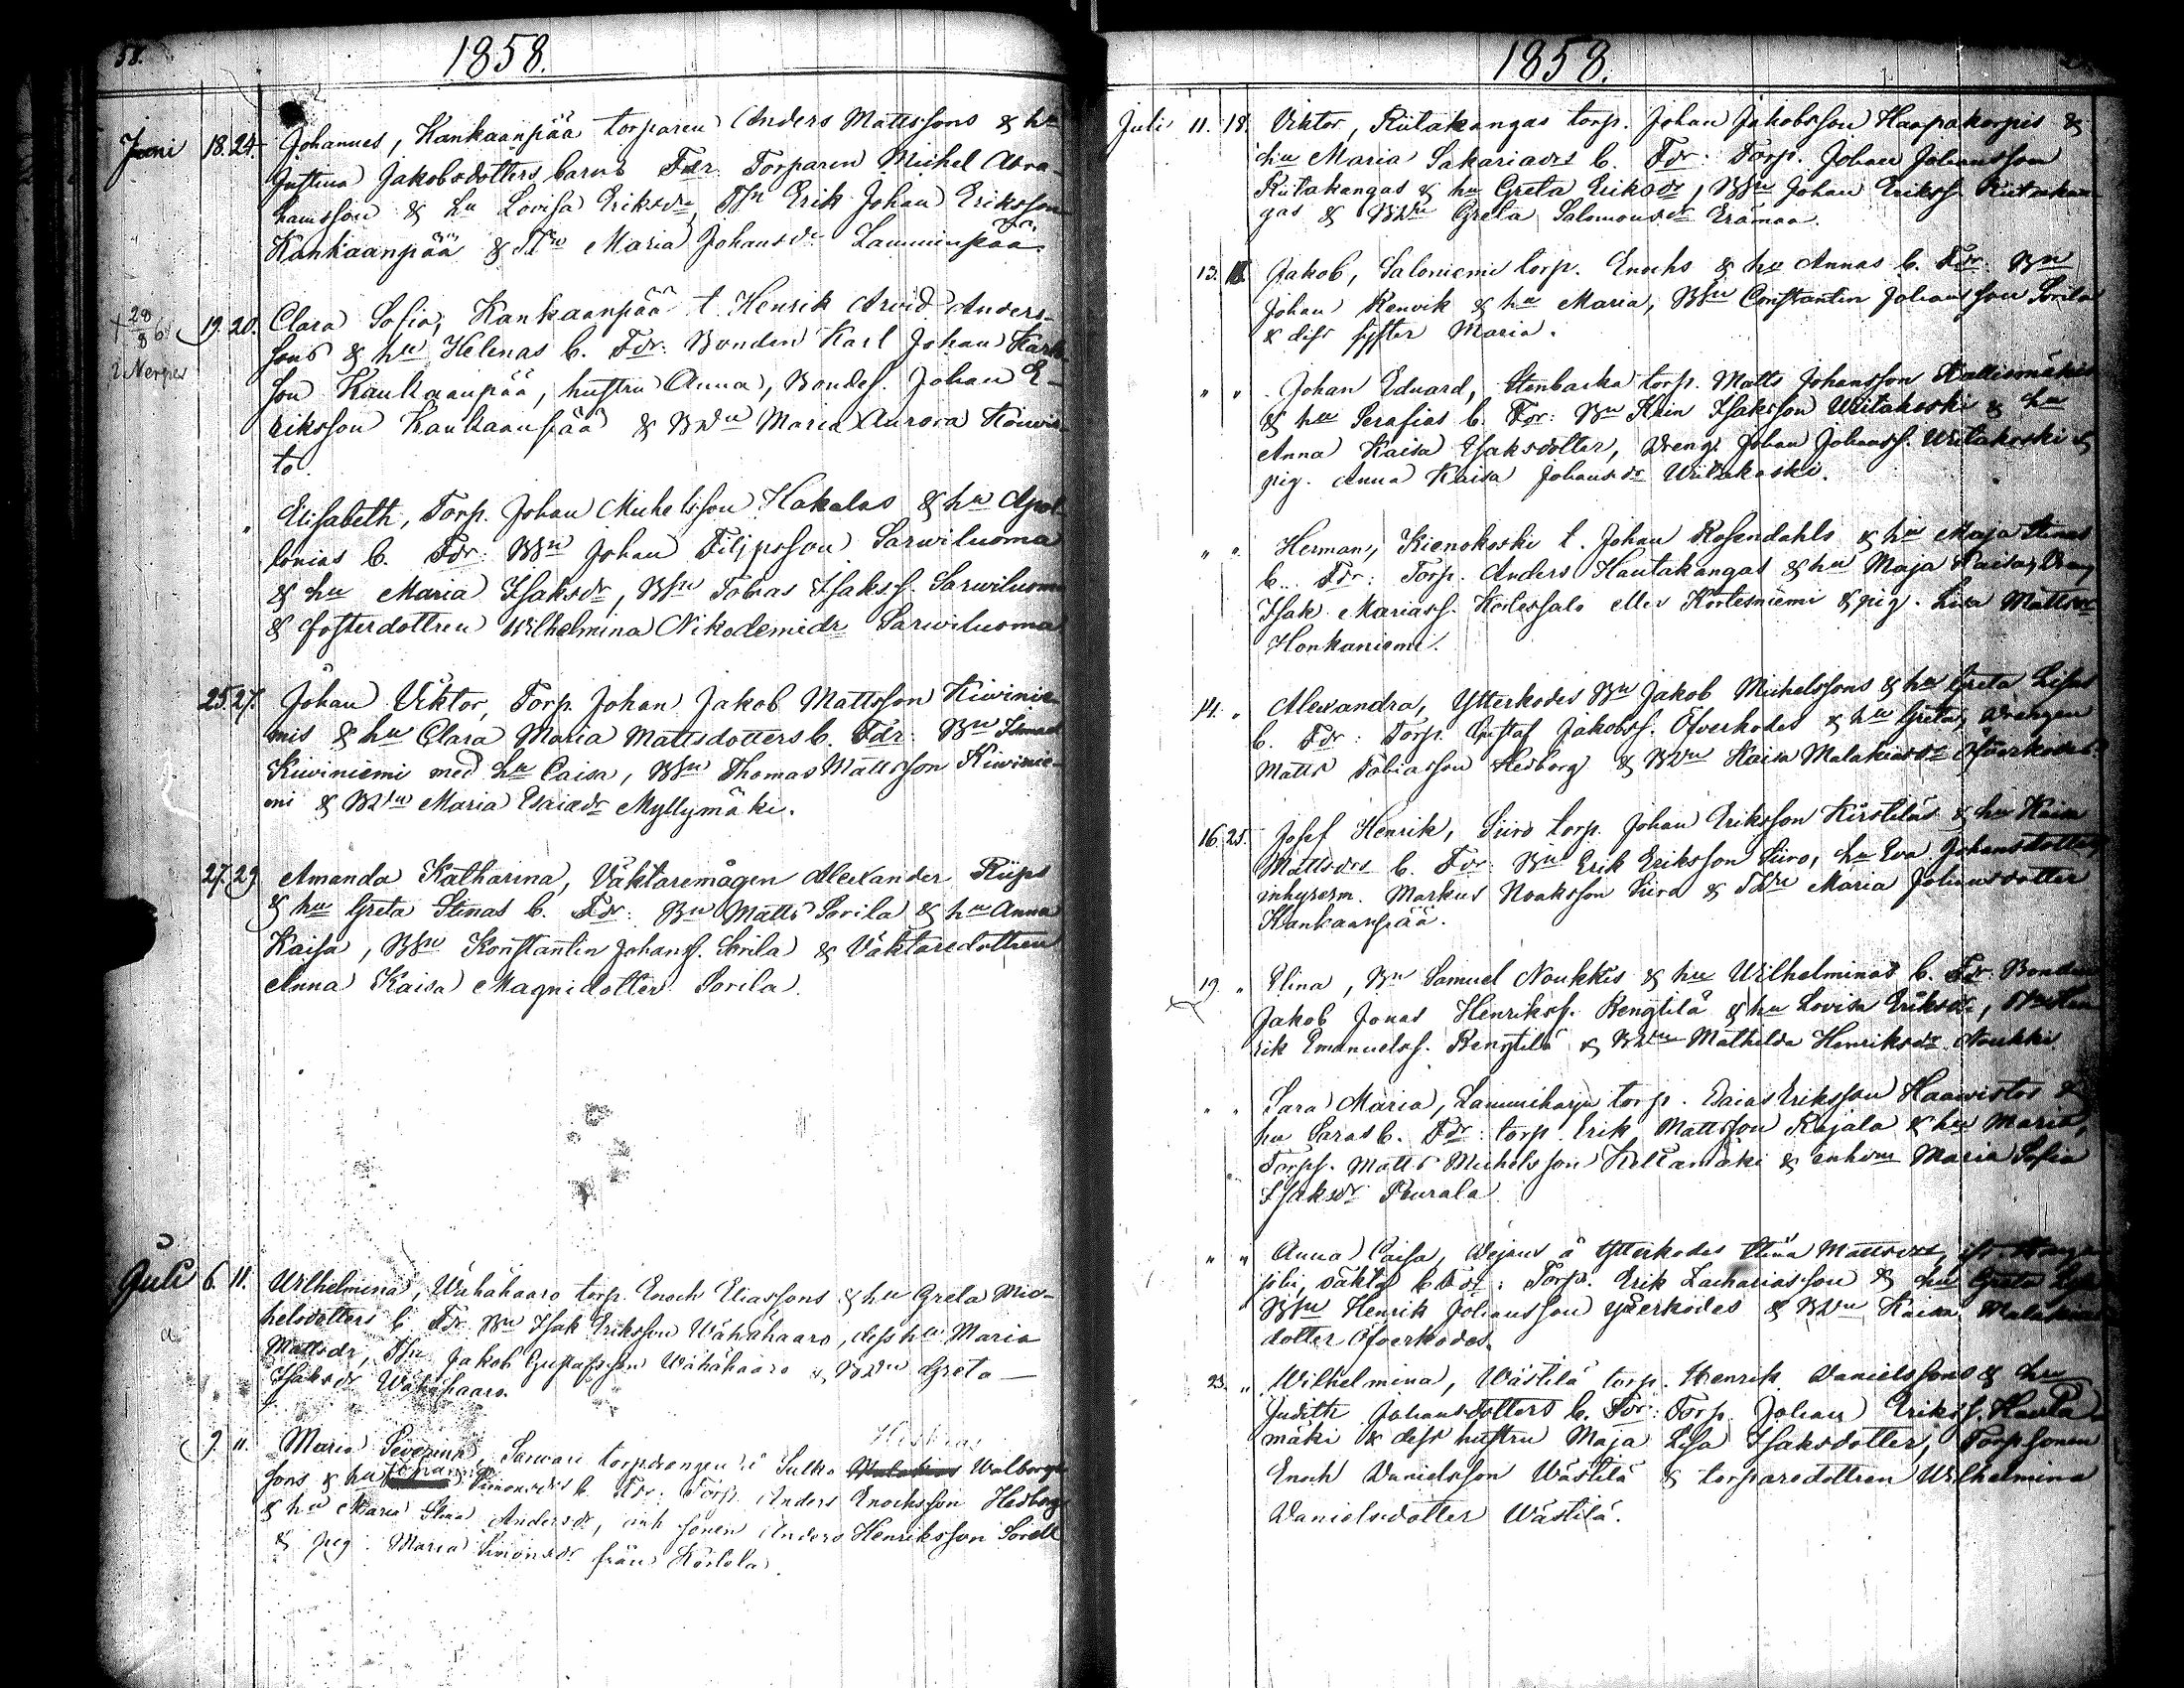 58.
1858.
Juni 18. 24. Johannes, Kankaanpää torparen Anders Mattssons & hu
Justina Jakobsdotters barn Fdr. Torparen Michel Abra-
hamsson & hu Lovisa Eriksdr, Tsn Erik Johan Eriksson
Kankaanpää & Tdn Maria Johansdr Lamminpää.
28/8 6
i Nerpes
19. 20. Clara Sofia, Kankaanpää t. Henrik Arvid Anders-
sons & hu Helenas b. Fdr: Bonden Karl Johan Karls-
son Kankaanpää, hustru Anna, Bondes. Johan E-
riksson Kankaanpää & Bdn Maria Aurora Koivis-
to.
" Elisabeth, Torp. Johan Michelsson Hakalas & hu Apol-
lonias b. Fdr: Bsn Johan Filipsson Sarwiluoma
& hu Maria Isaksdr, Bsn Tobias Isakss. Sarwiluoma
& fosterdottren Wilhelmina Nikodemidr Sarwiluoma
25. 27. Johan Viktor, Torp. Johan Jakob Mattsson Kiwinie-
mis & hu Clara Maria Mattsdotters b. Fdr: Bn
Kiwiniemi med hu Caisa, Bsn Thomas Mattsson Kiwinie-
mi & Bdn Maria Esaiedr Myllymäki.
27. 29 Amanda Katharina, Väktaremågen Alexander Riips
& hu Greta Stinas b. Fdr: Bn Matts Sorila & hu Anna
Kaisa, Bsn Konstantin Johanss. Sorila & Väktaredottren
Anna Kaisa Magnidotter Sorila.
Juli 6. 11. Wilhelmina, Wähähaaro torp. Enoch Eliassons & hu Greta Mic-
helsdotters b. Fdr Bn Isak Eriksson Wähähaaro, dess hu Maria
Mattsdr, Tsn Jakob Gustafsson Wähähaaro & Bdn Greta
Isaksdr Wähähaaro.
9. 11. Maria Severina, Sarvari torpdrängen i Sulka Walborg-
sons & hu Simonsdrs b. Fdr: Torp. Anders Enochsson Hedborg
& hu Maria Stina Andersdr, inh sonen Anders Henriksson Sorell
& pig. Maria Simonsdr från Koskela.
1858.
Juli 11. 18. Viktor, Riitakangas torp. Johan Jakobsson Haapakorpis &
hu Maria Sakariadrs b. Fdr: Torp. Johan Johansson
Riitakangas & hu Greta Eriksdr, Bsn Johan Erikss. Riitakan-
gas & Bdn Greta Salomonsdr Erämaa.
13. 18. Jakob, Saloniemi torp. Enochs & hu Annas b. Fdr: Bn
Johan Renvik & hu Maria, Bsn Constantin Johansson Sorila
& dess syster Maria.
" " Johan Eduard, Stenbacka torp. Matts Johansson Kallionmäkis
& hu Serafias b. Fdr: Bn Isaksson Witakoski & hu
Anna Kaisa Isaksdotter, Dreng. Johan Johanss. Witakoski &
pig. Anna Kaisa Johansdr Witakoski.
" " Herman, Kienokoski t. Johan Rosendahls & hu Maja Stinas
b. Fdr: Torp. Anders Hautakangas & hu Maja Kaisa, Dreng
Isak Mariass. Kortessalo eller Kortesniemi & pig. Lisa Mattsdr
Honkaniemi.
14. " Alexandra, Ytterkodes Bn Jakob Michelssons & hu Greta Lisas
b. Fdr: Torp. Gustaf Jakobss. Öfverkodes & hu Greta, Drengen
Matts Tobiasson Hedborg & Bdn Kaisa Malakiasdr Öfverkodes.
16. 25. Josef Henrik, Siiro torp. Johan Eriksson Kirstiläs & hu Kaisa
Mattsdrs b. Fdr: Bn Erik Eriksson Siiro, hu Eva Johansdotter,
inhyserm. Markus Noaksson Siiro & Tdn Maria Johansdotter
Kankaanpää.
19. " Elina, Bn Samuel Noukkis & hu Wilhelminas b. Fdr: Bonden
Jakob Jonas Henrikss. Rengtilä & hu Lovisa Eriksdr, Bsn Hen-
rik Emanuelss. Rengtilä & Bdn Mathilda Henriksdr Noukki
" " Sara Maria, Lammiharju torp. Esaias Eriksson Haawistos &
hu Saras b. Fdr: torp. Erik Mattsson Rajala & hu Maria,
Torps. Matts Michelsson Kellamäki & Maria Sofia
Isaksdr Peurala
" " Anna Caisa, Wejans å Ytterkodes Stina Mattsdrs,
b Fdr: Torp. Erik Zachariasson & hu Greta
Bsn Henrik Johansson Ytterkodes & Bdn Kaisa Malakias-
dotter Öfverkodes.
23. " Wilhelmina, Wästilä torp. Henrik Danielssons & hu
Judith Johansdotters b. Fdr: Torp. Johan Erikss. Hauta-
mäki & dess hustru Maja Lisa Isaksdotter, Torpsonen
Enoch Danielsson Wästilä & torparedottren Wilhelmina
Danielsdotter Wästilä.